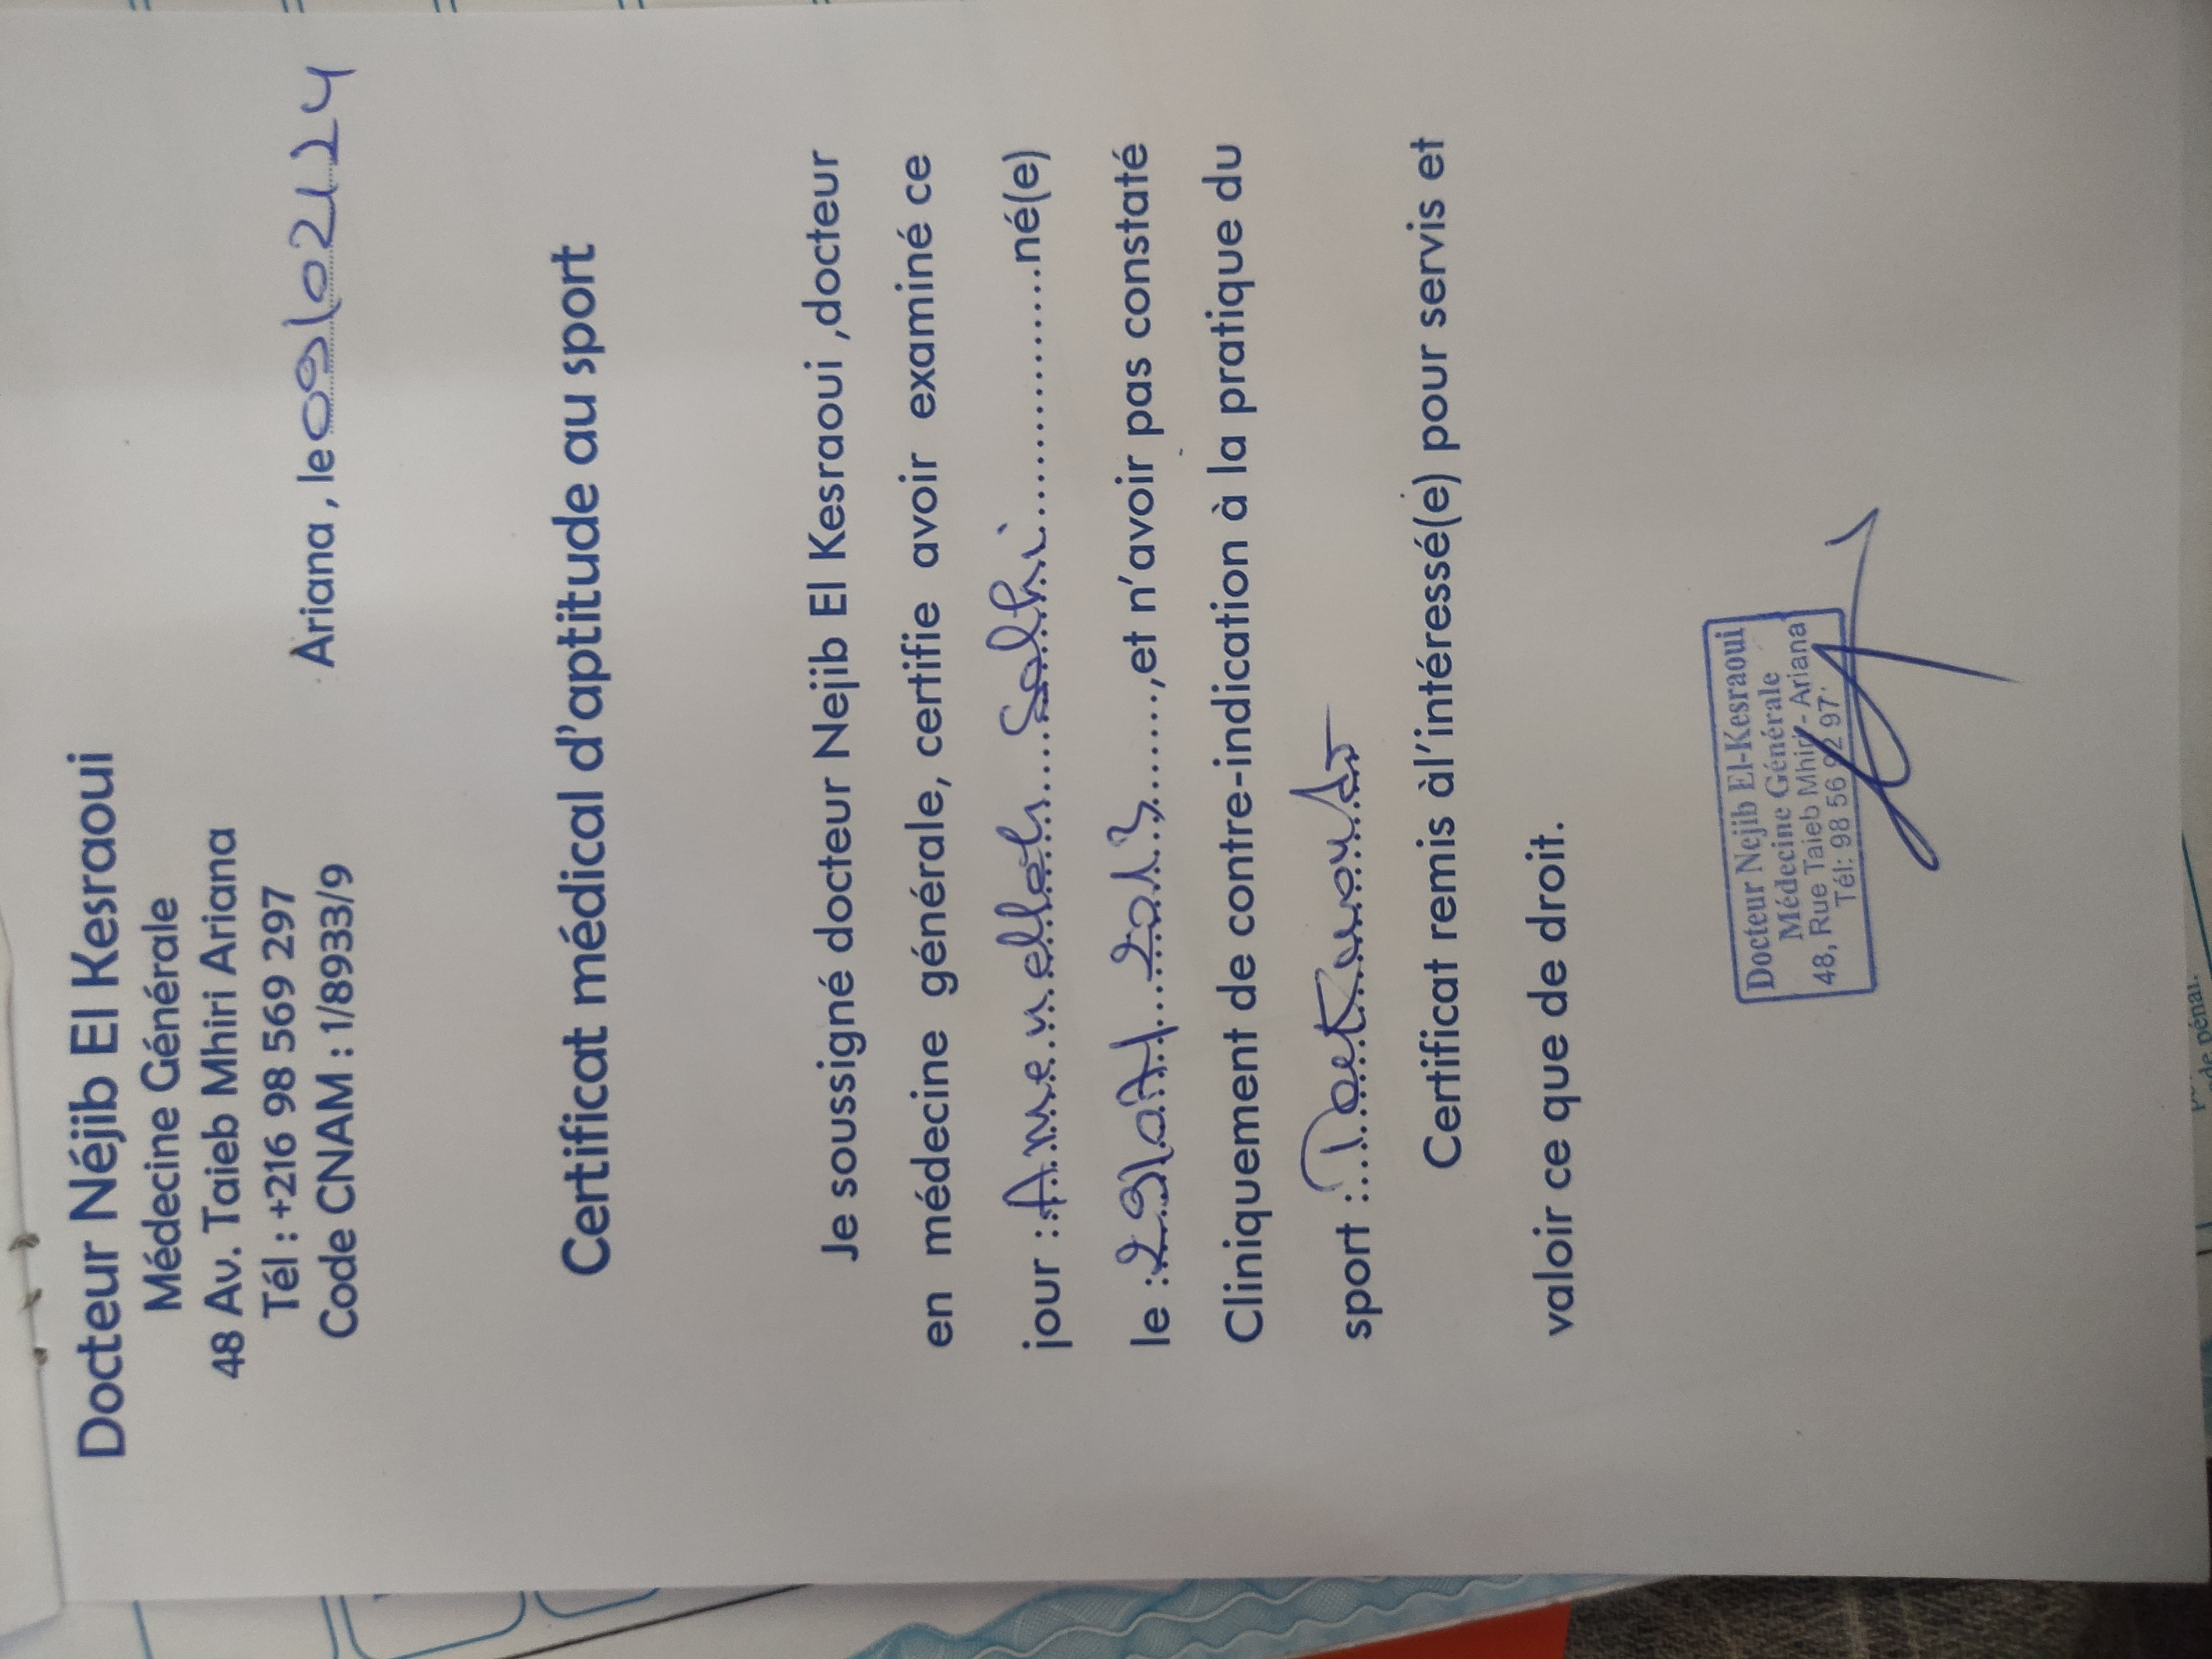 Docteur Néjib El Kesraoui
Médecine Générale
48 Av. Taieb Mhiri Ariana
Tél : +216 98 569 297
Code CNAM : 1/8933/9
Ariana , le 09/02/24
Certificat médical d'aptitude au sport
Je soussigné docteur Nejib El Kesraoui ,docteur
en médecine générale, certifie avoir examiné ce
jour : Amenallah Salhi né(e)
le : 29/01/2013, et n'avoir pas constaté
Cliniquement de contre-indication à la pratique du
sport : Taekwondo
Certificat remis àl'intéressé(e) pour servis et
valoir ce que de droit.
Docteur Nejib El-Kesraoui
Médecine Générale
48, Rue Taieb Mhiri - Ariana
Tél: 98 56 92 97
de pénal.